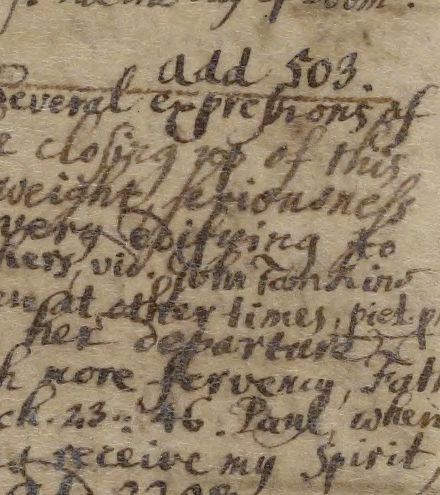 add 503.
several expressions of
closing up of this
weight, seriousness
very edifying to
viz. John Tomkins
at other times, piet. p
her departure
more fervency, Fath
ck. 23: 46. Paul, when
receive my Spirit